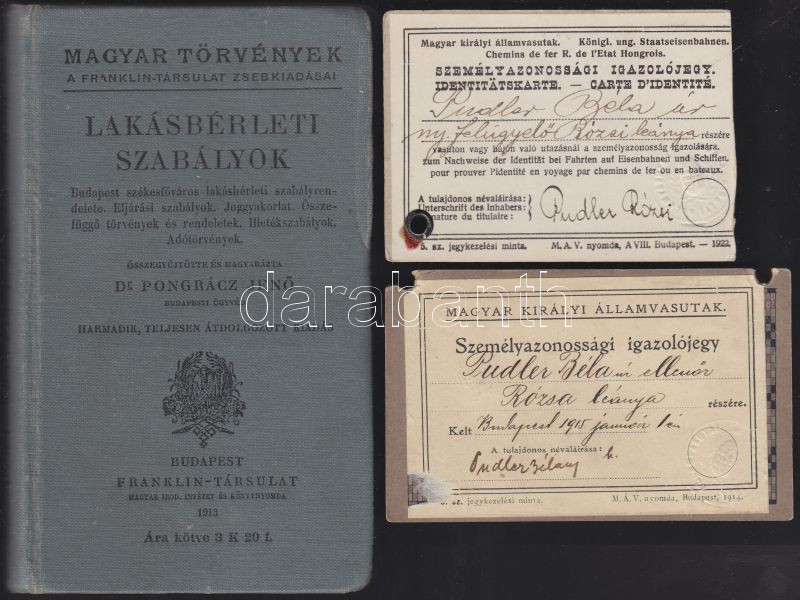 MAGYAR TÖRVÉNYEK
A FRANKLIN-TÁRSULAT ZSEBKIADÁSAI
LAKÁSBÉRLETI
SZABÁLYOK
Budapest székesfőváros lakásbérleti szabályren-
delete. Eljárási szabályok. Joggyakorlat. Össze-
függő törvények és rendeletek. Illetékszabályok.
Adótörvények.
ÖSSZEGYŰJTÖTTE ÉS MAGYARÁZTA
Dr PONGRÁCZ JENŐ
BUDAPESTI ÜGYVÉD
HARMADIK, TELJESEN ÁTDOLGOZOTT KIADÁS
BUDAPEST
FRANKLIN-TÁRSULAT
MAGYAR IROD. INTÉZET ÉS KÖNYVNYOMDA
1913
Ára kötve 3 K 20 f.
Magyar királyi államvasutak. Königl. ung. Staatseisenbahnen.
Chemins de fer R. de l'Etat Hongrois.
SZEMÉLYAZONOSSÁGI IGAZOLÓJEGY.
IDENTITÄTSKARTE. — CARTE D'IDENTITÉ.
Pudler Béla úr
ny. felügyelő Rózsi leánya részére
vasuton vagy hajón való utazásnál a személyazonosság igazolására.
zum Nachweise der Identität bei Fahrten auf Eisenbahnen und Schiffen.
pour prouver l'identité en voyage par chemins de fer ou en bateaux.
A tulajdonos névaláírása:
Unterschrift des Inhabers:
nature du titulaire:
Pudler Rózsi
5. sz. jegykezelési minta. M. A. V. nyomda, A VIII. Budapest. — 1922
MAGYAR KIRÁLYI ÁLLAMVASUTAK.
Személyazonossági igazolójegy
Pudler Béla úr ellenőr
Rózsa leánya részére.
Kelt Budapest 1915 január 1én
A tulajdonos névaláírása:
Pudler Béla
sz. jegykezelési minta. M. Á. V. nyomda, Budapest, 1914.
darabanth